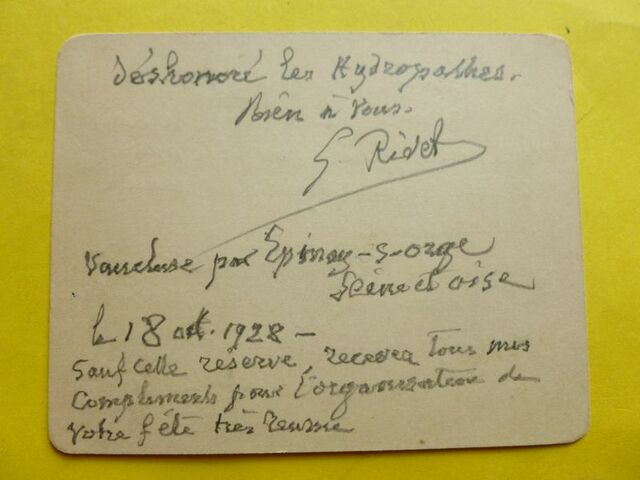 déshonoré les Hydropathes.
Bien à vous.
G. Rivet
Vaucluse par Epinay-s-orge
Seine et Oise
le 18 oct. 1928 -
Sauf cette réserve, recevez tous mes
Compliments pour l'organisation de
votre fête très réussie